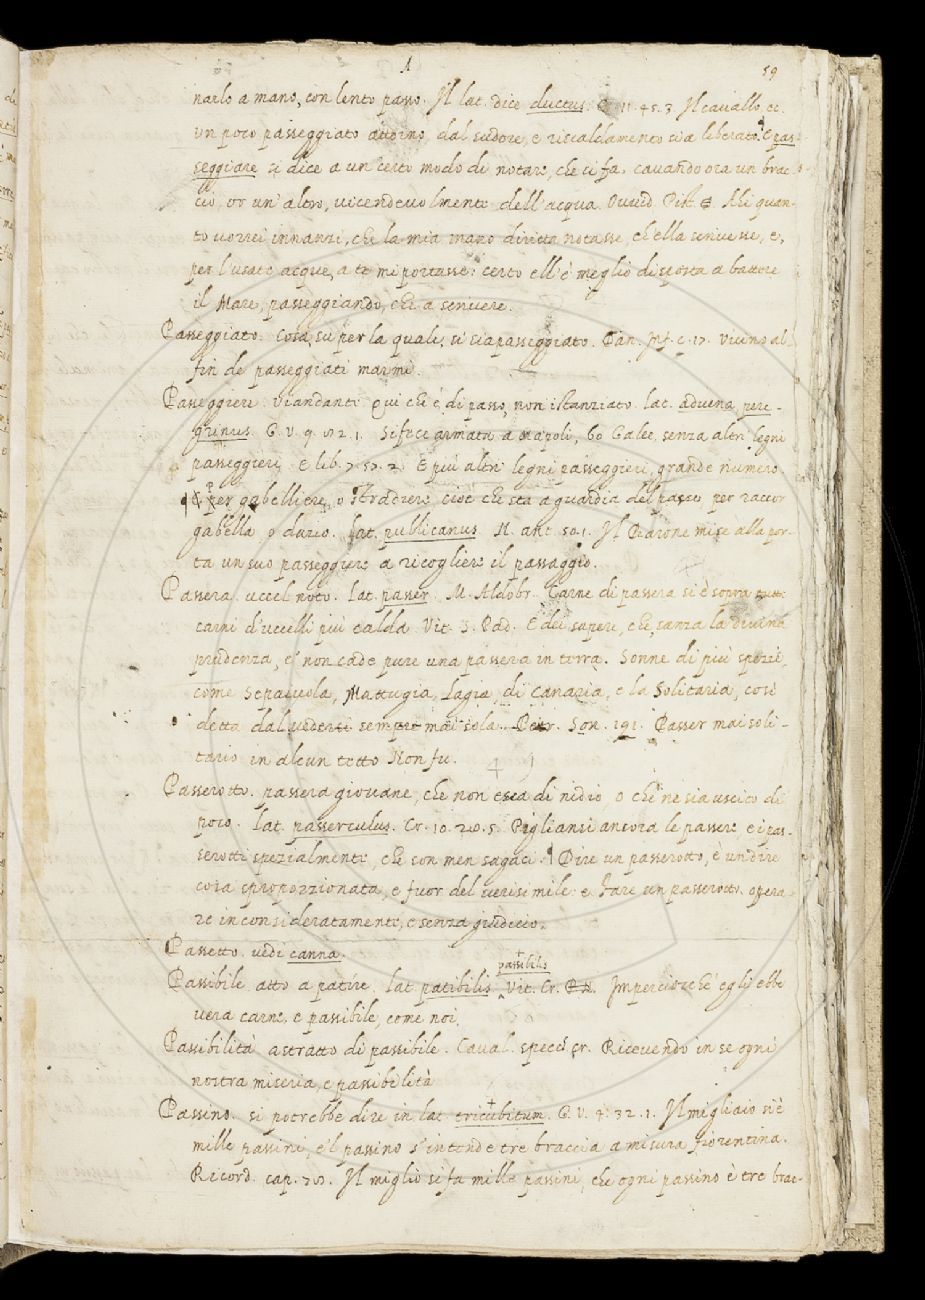 59
narlo a mano, con lento passo. Il lat. dice ductus. C. 11. 45. 3. Il cavallo, ec.
un poco passeggiato attorno, dal sudore, e riscaldamento sia liberato. E pas-
seggiare si dice a un certo modo di notare, che si fa, cavando ora un brac-
cio, or un' altro, vicendevolmente dell'acqua. Ovvid. Pist. Ahi quan-
to vorrei innanzi, che la mia mano diritta notasse, ch'ella scrivesse, e,
per l'usate acque, a te mi portasse: certo ell'è meglio disposta a battere
il Mare, passeggiando, che a scrivere.
Passeggiato. Cosa, su per la quale, si sia passeggiato. Dan. Inf. c. 17. Vicino al
fin de passeggiati marmi.
Passeggiere. Viandante. Qui che è di passo, non istanziato. lat. advena, pere-
grinus. G. V. 9. 2. 1. Si fece armata a Napoli, 60 Galee, senza altri legni
passeggieri. E lib. 7. 57. 2. E più altri legni passeggieri, grande numero.
per gabelliere, o Stradiere cioè che sta a guardia del passo per raccor
gabella o dazio. Lat. publicanus. N. ant. 50. 1. Il Barone mise alla por-
ta un suo passeggiere a ricogliere il passaggio.
Passera. uccel noto. lat. passer. M. Aldobr. Carne di passera si è sopra tutte
carni d'uccelli più calda. Vit. S. Pad. E dei sapere, che sanza la divina
prudenza, e' non cade pure una passera in terra. Sonne di più spezie,
come Sepaiuola, Mattugia, Lagia, di Canaria, e la Solitaria, così
detta dal vedersi sempre mai sola. Petr. Son. 191. Passer mai soli-
tario in alcun tetto Non fu.
Passerotto. passera giovane, che non esca di nidio, o che ne sia uscito di
poco. Lat. passerculus. Cr. 10. 20. 5. Pigliansi ancora le passere e i pas-
serotti spezialmente, che son men sagaci. Dire un passerotto, è un dire
cosa sproporzionata, e fuor del verisimile. e fare un passerotto. opera-
re inconsideratamente, e senza giudicio.
Passetto. vedi canna.
passibilis
Passibile. atto a patire. lat. patibilis. Vit. Cr. Imperciocchè egli ebbe
vera carne, e passibile, come noi.
Passibilità. astratto di passibile. Caval. specc. cr. Ricevendo in se ogni
nostra miseria, e passibilità
Passino. si potrebbe dire in lat. tricubitum. G. V. 4. 32. 1. Il migliaio si è
mille passini, e 'l passino s'intende tre braccia a misura fiorentina.
Ricord. cap. Il miglio si fa mille passini, che ogni passino è tre brac-